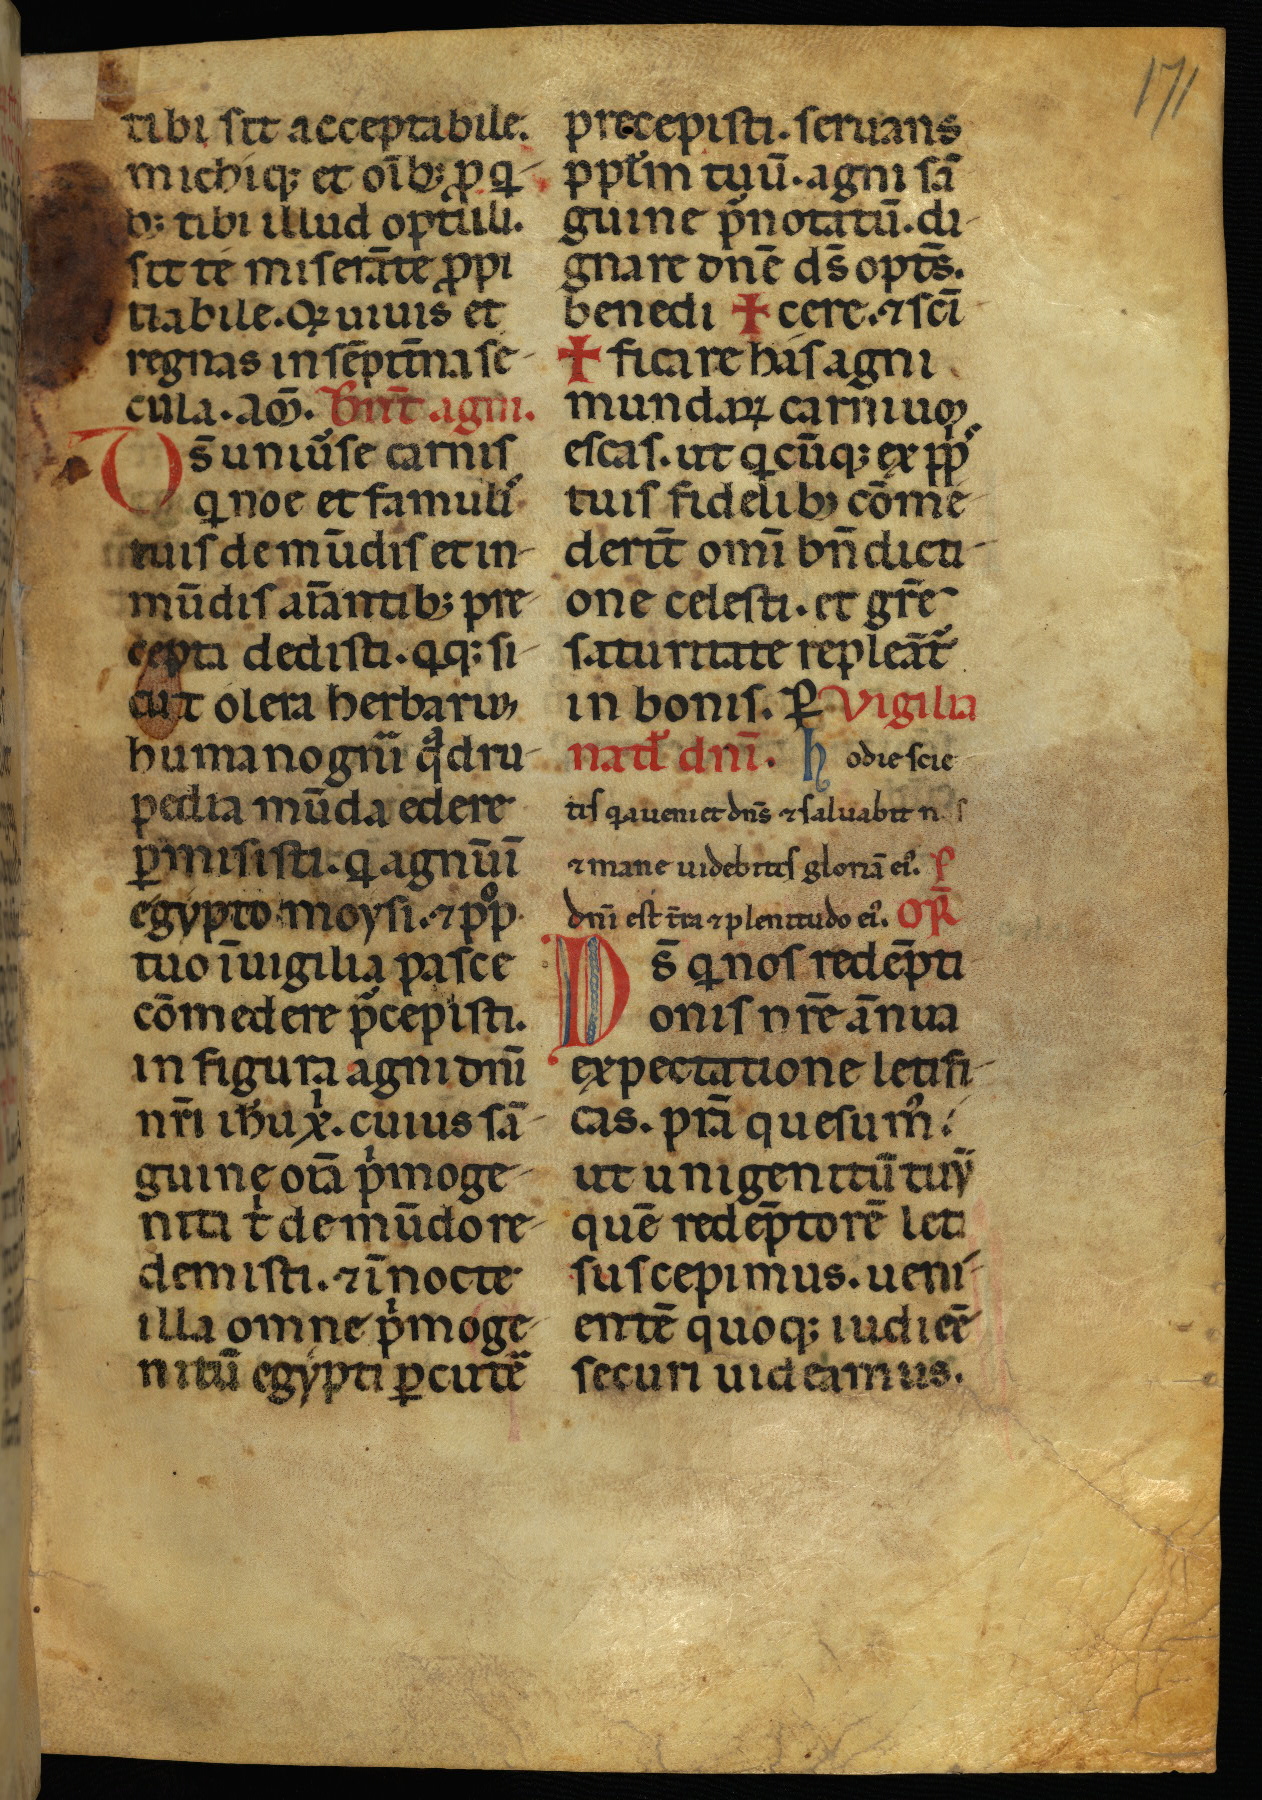 171
tibi sit acceptabile.
michiq; et oı̄b; ꝓ q̇
b; tibi illud optuli.
sit te miserāte ꝓpi
tiabile. Qꝛ uiuis et
regnas in sēpit̄na se
cula. am̄. Bn̄t agni.
D s̄ uniūse carnis
q̇ noe et famulis
tuis de mūdis et in
mūdis aīantib; pre
cepta dedisti. qq; si
cut olera herbarum
humano gn̄i q̄dru
pedia mūda edere
ꝑmisisti. q̇ agnū ī
egypto moysi. ⁊ pp̄o
tuo ī uigilia pasce
cōmedere p̄cepisti.
in figura agni dn̄i
nr̄i ihu xp̄i. cuius sā
guine oīa pⁱmoge
nita tⁱ de mūdo re
demisti. ⁊ ī nocte
illa omne pⁱmoge
nitū egypti ꝑcutē
precepisti. seruans
pplm̄ tuū. agni sā
guine p̄notatū. di
gnare dn̄e ds̄ opt̄s.
benedi ✝ cere. ⁊ sc̄i
✝ ficare has agni
mundaꝝ carniuꝫ
escas. ut q̇cūq; ex pp̄
tuis fidelib; cōme
derit̄ omī bn̄dicti
one celesti. et gr̄e
saturitate repleāt̄
in bonis. ꝑ Vigilia
natl̄ dn̄i. hodie scie
tis q̇a ueniet dn̄s ⁊ saluabit nos
⁊ mane uidebitis gloriā eiꝰ. p̄
dn̄i est t̄ra ⁊ plenitudo eiꝰ. Or̄
D s̄ q̇ nos redēpti
onis nr̄e ānua
expectatione letifi
cas. pr̄a quesumꝰ.
ut unigenitū tuū
quē redēptorē leti
suscepimus. ueni
entē quoq; iudicē
securi uideamus.